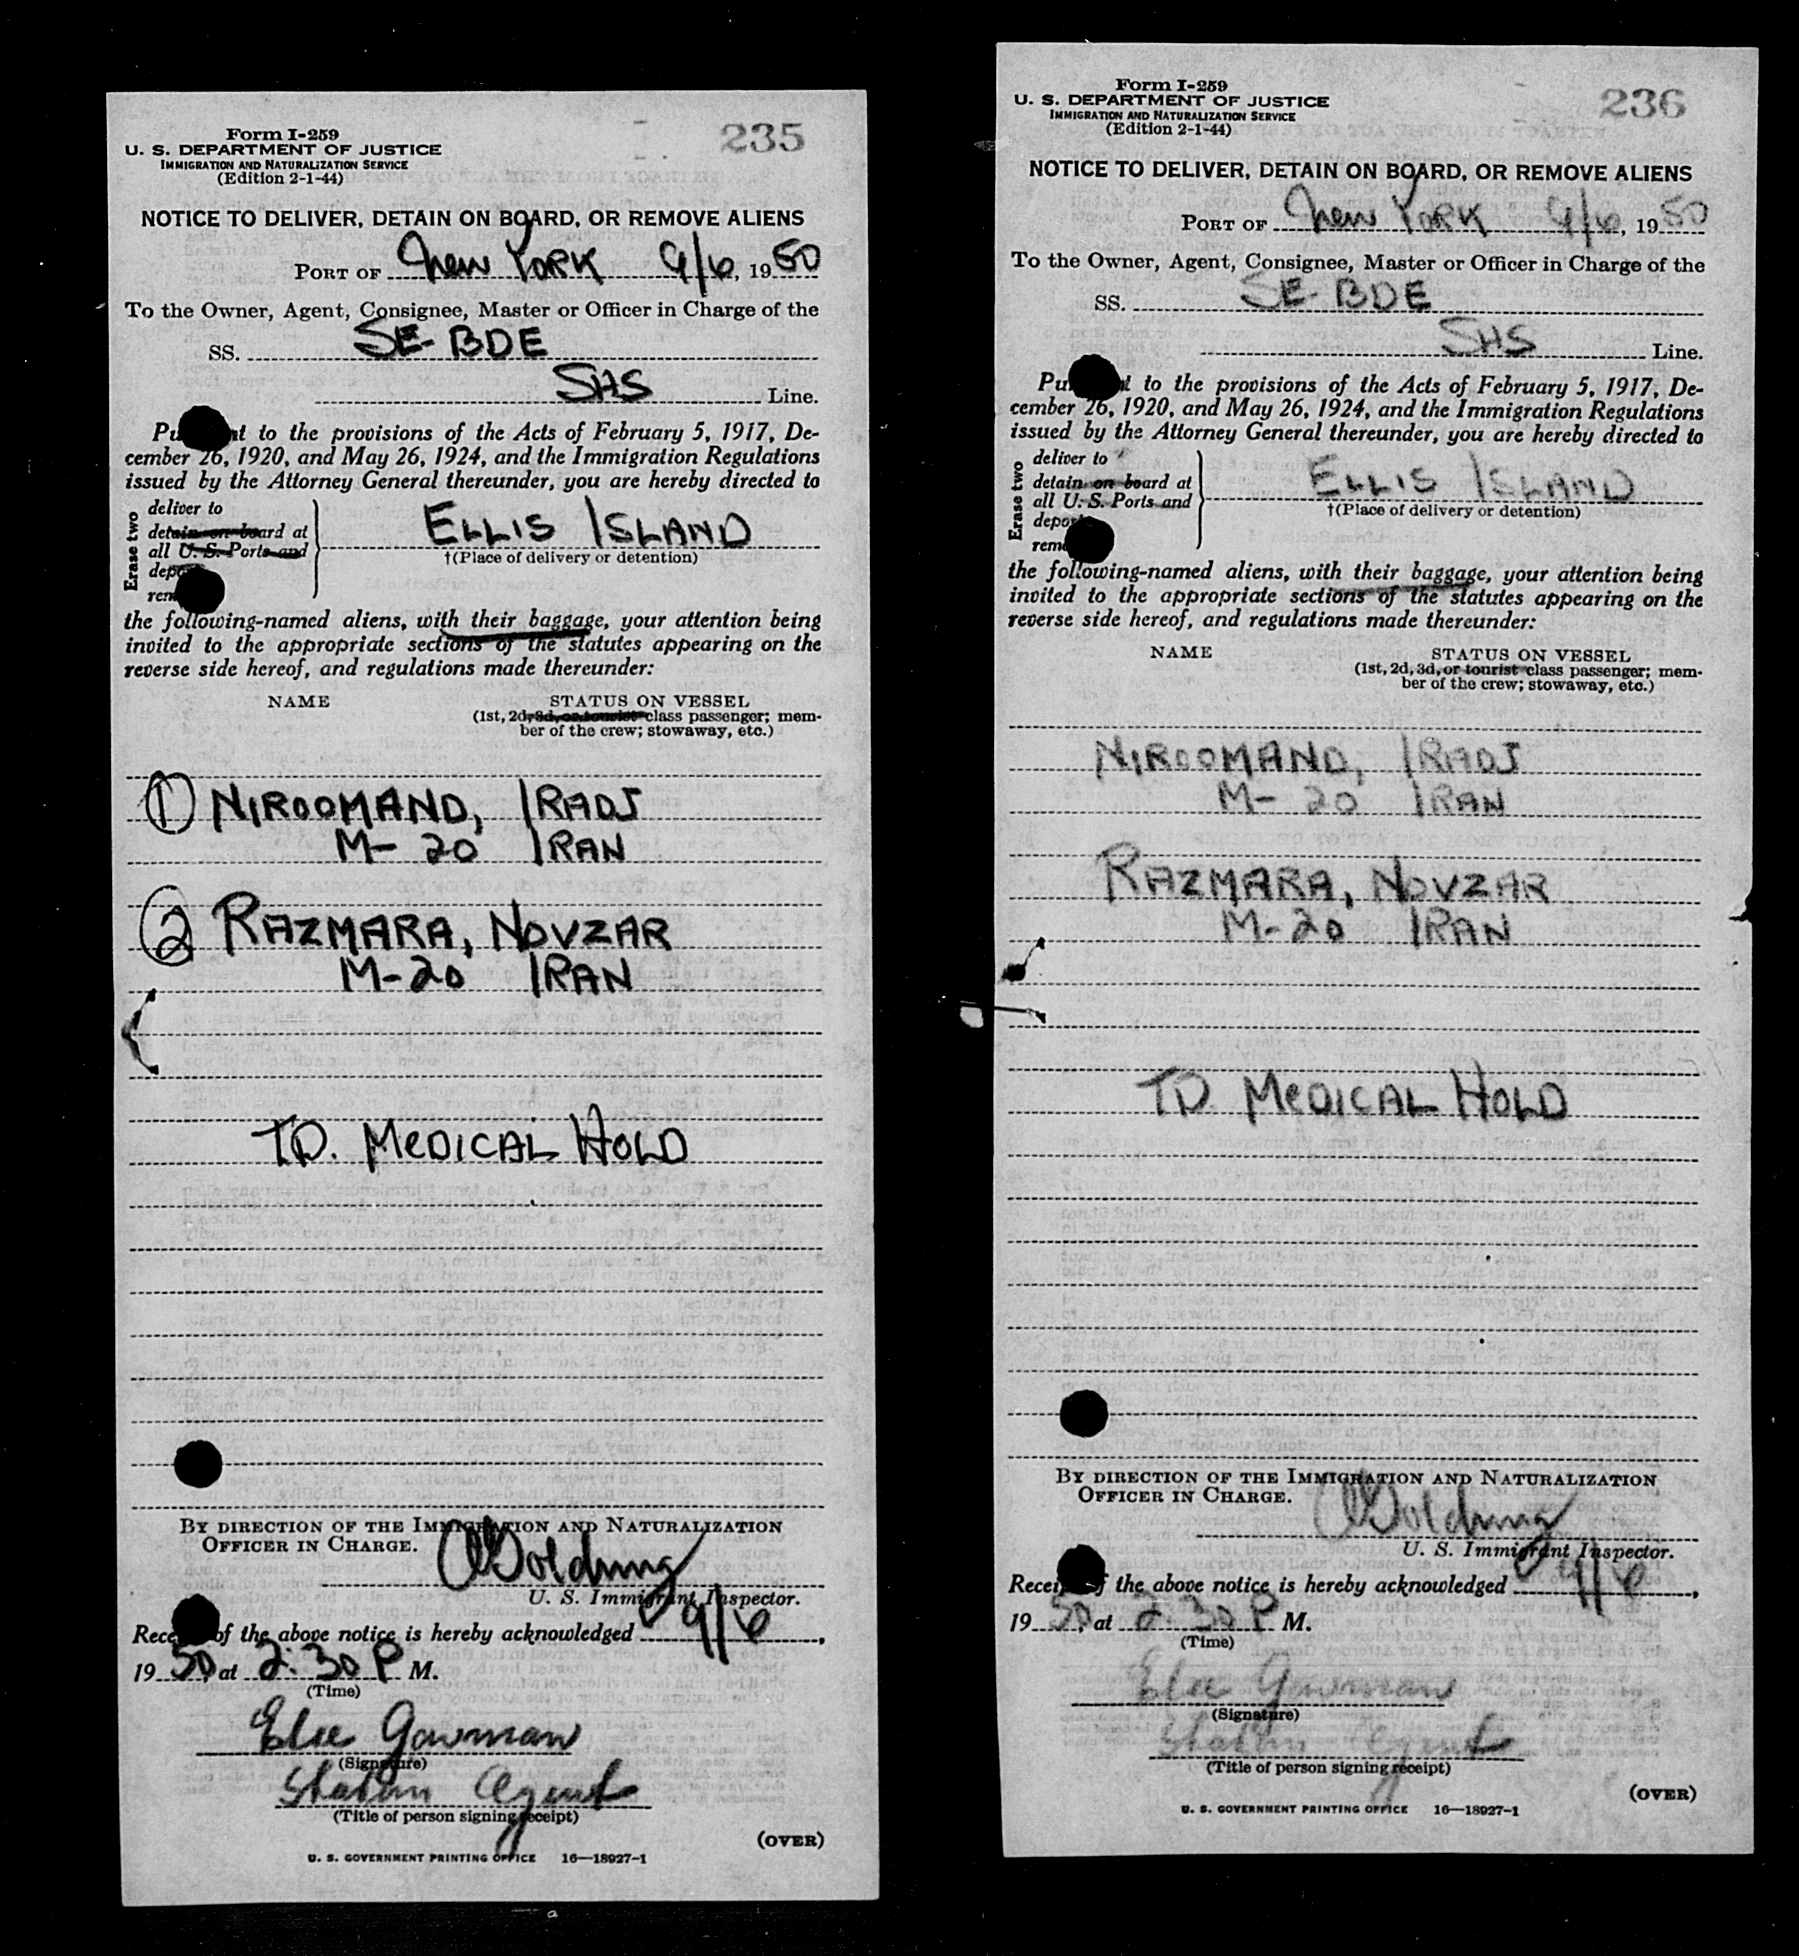 235
Form I-259
U. S. DEPARTMENT OF JUSTICE
IMMIGRATION AND NATURALIZATION SERVICE
(Edition 2-1-44)
NOTICE TO DELIVER, DETAIN ON BOARD, OR REMOVE ALIENS
PORT OF New York 9/6, 1950
To the Owner, Agent, Consignee, Master or Officer in Charge of the
SS. SE-BDE
SAS Line.
Pu t to the provisions of the Acts of February 5, 1917, De-
cember 26, 1920, and May 26, 1924, and the Immigration Regulations
issued by the Attorney General thereunder, you are hereby directed to
Erase two
deliver to
detain on board at
all U. S. Ports and
depo
rem
ELLIS ISLAND
†(Place of delivery or detention)
the following-named aliens, with their baggage, your attention being
invited to the appropriate sections of the statutes appearing on the
reverse side hereof, and regulations made thereunder:
NAME STATUS ON VESSEL
(1st, 2d, 3d, or tourist class passenger; mem-
ber of the crew; stowaway, etc.)
1 NIROOMAND, IRADJ
M- 20 IRAN
2 RAZMARA, NOVZAR
M-20 IRAN
TD. MEDICAL HOLD
BY DIRECTION OF THE IMMIGRATION AND NATURALIZATION
OFFICER IN CHARGE.
Golding
U. S. Immigrant Inspector.
Rece of the above notice is hereby acknowledged 9/6,
1950, at 2:30 P M.
(Time)
(Signature)
Station Agent
(Title of person signing receipt)
(OVER)
U. S. GOVERNMENT PRINTING OFFICE 16—18927-1
236
Form I-259
U. S. DEPARTMENT OF JUSTICE
IMMIGRATION AND NATURALIZATION SERVICE
(Edition 2-1-44)
NOTICE TO DELIVER, DETAIN ON BOARD, OR REMOVE ALIENS
PORT OF New York 9/6, 1950
To the Owner, Agent, Consignee, Master or Officer in Charge of the
SS. SE-BDE
SAS Line.
Pu t to the provisions of the Acts of February 5, 1917, De-
cember 26, 1920, and May 26, 1924, and the Immigration Regulations
issued by the Attorney General thereunder, you are hereby directed to
Erase two
deliver to
detain on board at
all U. S. Ports and
depor
rem
ELLIS ISLAND
†(Place of delivery or detention)
the following-named aliens, with their baggage, your attention being
invited to the appropriate sections of the statutes appearing on the
reverse side hereof, and regulations made thereunder:
NAME STATUS ON VESSEL
(1st, 2d, 3d, or tourist class passenger; mem-
ber of the crew; stowaway, etc.)
NIROOMAND, IRADJ
M- 20 IRAN
RAZMARA, NOVZAR
M-20 IRAN
TD. MEDICAL HOLD
BY DIRECTION OF THE IMMIGRATION AND NATURALIZATION
OFFICER IN CHARGE.
Golding
U. S. Immigrant Inspector.
Recei of the above notice is hereby acknowledged 9/6,
1950, at 2:30 P M.
(Time)
(Signature)
Station Agent
(Title of person signing receipt)
(OVER)
U. S. GOVERNMENT PRINTING OFFICE 16—18927-1